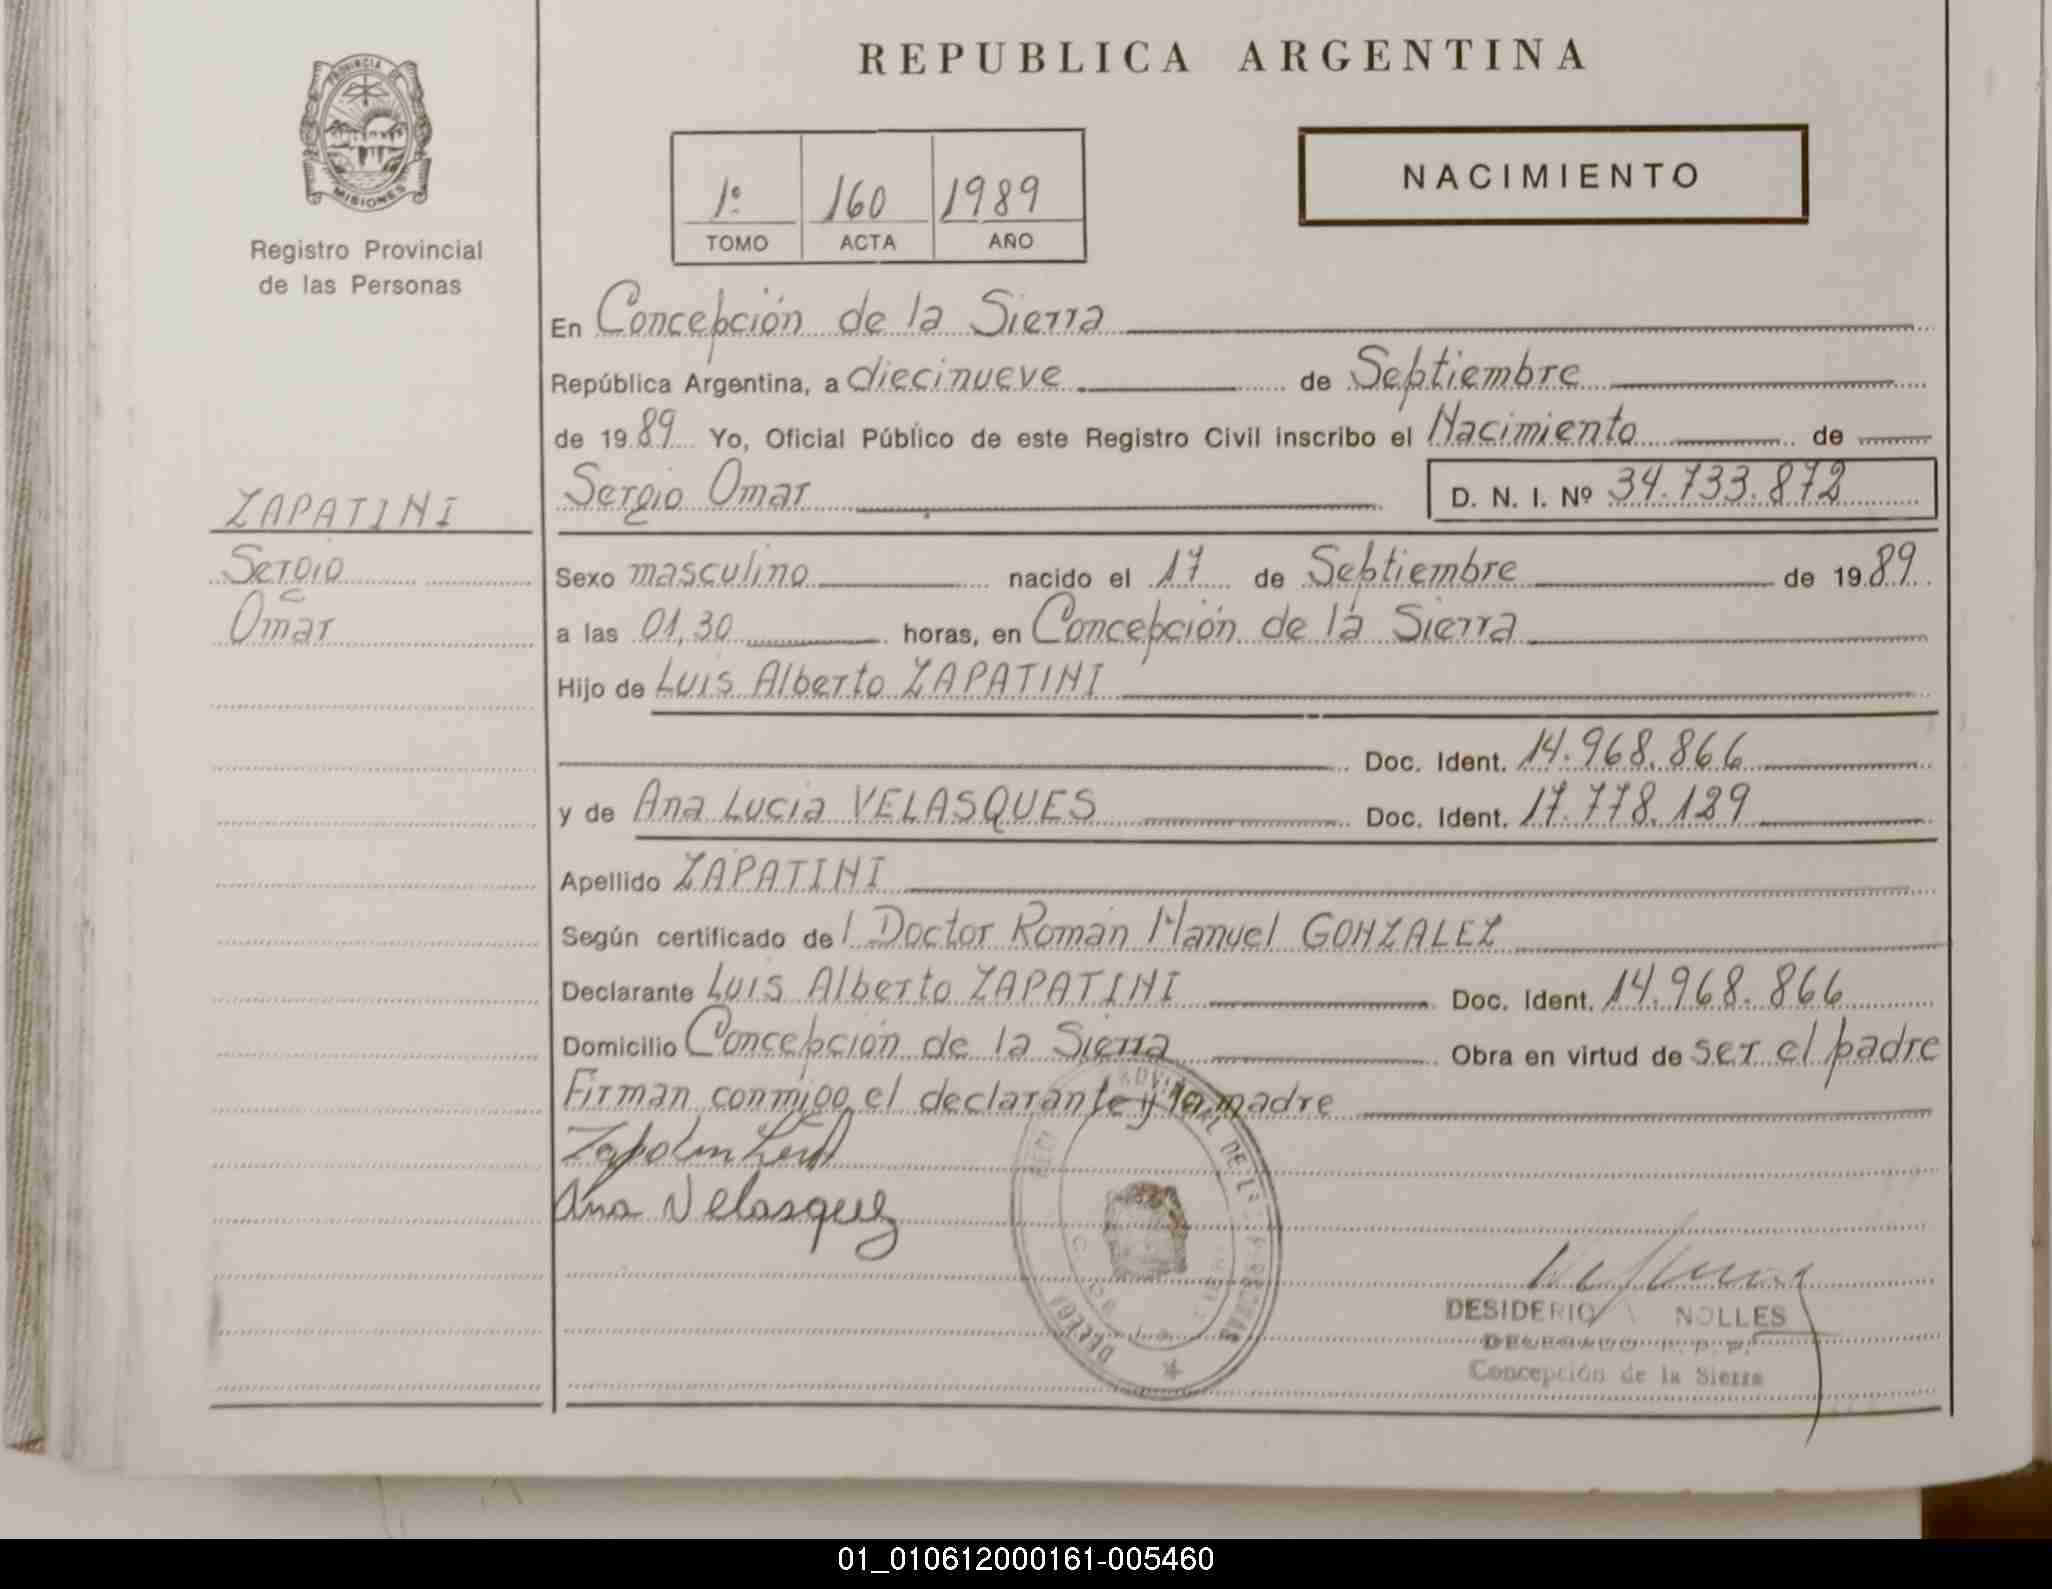 REPUBLICA ARGENTINA
PROVINCIA DE
MISIONES
Registro Provincial
de las Personas
1º 160 1989
TOMO ACTA AÑO
NACIMIENTO
En Concepción de la Sierra
República Argentina, a diecinueve de Septiembre
de 1989 Yo, Oficial Público de este Registro Civil inscribo el Nacimiento de
Sergio Omar D. N. I. Nº 34.733.872
ZAPATINI
Sergio
Omar
Sexo masculino nacido el 17 de Septiembre de 1989
a las 01,30 horas, en Concepción de la Sierra
Hijo de Luis Alberto ZAPATINI
Doc. Ident. 14.968.866
y de Ana Lucia VELASQUES Doc. Ident. 17.778.129
Apellido ZAPATINI
Según certificado del Doctor Román Manuel GONZALEZ
Declarante Luis Alberto ZAPATINI Doc. Ident. 14.968.866
Domicilio Concepción de la Sierra Obra en virtud de ser el padre
Firman conmigo el declarante y la madre
Ana Velasquez
DESIDERIO NOLLES
DELEGADO R. P. P.
Concepción de la Sierra
01_010612000161-005460